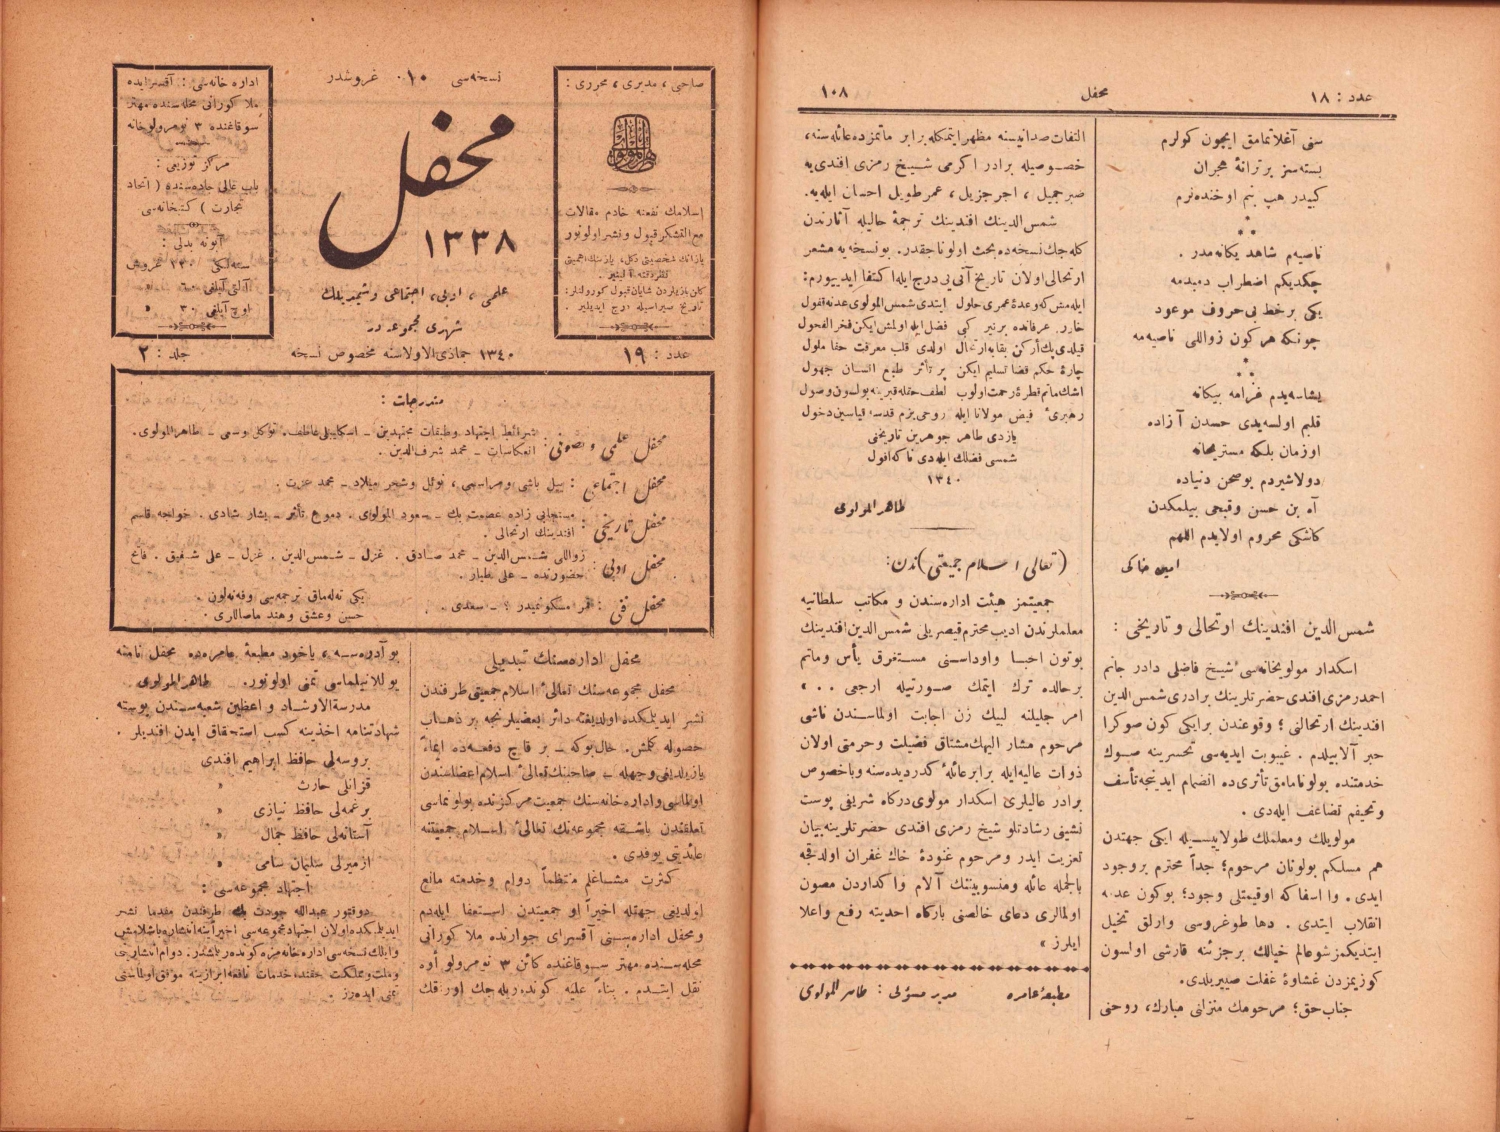 عدد : ١٨
محفل
١٠٨
سنی آغلاتمامق ایچون کولرم
بسته‌سز بر ترانهٔ هجران
کبیدر هپ بنم او خنده‌لرم
ناصیه‌م شاهد یکانه‌مدر .
چکدیکم اضطراب دمبدمه
یکی بر خط بی‌حروف موعود
چونکه هر کون زواللی ناصیه‌مه
یشاسه‌یدم غزامه بیکانه
قلبم اولسه‌یدی حسدن آزاده
او زمان بلکه مستریحانه
دولاشیردم بو صحن دنیاده
آه بن حسن و قبحی بیلمکدن
کاشکی محروم اولایدم اللهم
امین خاکی
شمس الدین افندینك ارتحالی و تاریخی :
اسکدار مولویخانه‌سی شیخ فاضلی دادر جانم
احمد رمزی افندی حضرتلرینك برادری شمس الدین
افندینك ارتحالنی ؛ وقوعندن بر ایکی کون صوکرا
خبر آلابیلدم . غیبوبت ابدیه‌سی تحسرینه صوك
خدمتنده بولونامامق تأثری ده انضمام ایدنجه تأسف
و تحیفم تضاعف ایله‌دی .
مولویلك و معلملك طولاییسیله ایکی جهتدن
هم مسلکم بولونان مرحوم ؛ جداً محترم بر وجود
ایدی . وا اسفا که او قیمتلی وجود ؛ بوکون عدمه
انقلاب ایتدی . دها طوغروسی وارلق تخیل
ایتدیکمز شو عالم خیالك برجزئنه قارشی اولسون
کوزیمزدن غشاوهٔ غفلت صییریلدی.
جناب حق ؛ مرحومك منزلنی مبارك ، روحنی
التفات صدانیسنه مظهر ایتمکله برابر ماتمزده عائله‌سنه ،
خصوصیله برادر اکرمی شیخ رمزی افندی یه
صبر جمیل ، اجر جزیل ، عمر طویل احسان ایله‌یه.
شمس الدینك افندینك ترجمهٔ حالیله آثارندن
کله‌جك نسخه‌ده بحث اولوناجقدر. بو نسخه یه مشعر
ارتحالی اولان تاریخ آتی یی درج ایله اکتفا ایدییورم :
یازدی طاهر جوهرین تاریخنی
شمسی فضلك ایله‌دی ناکه افول
١٣٤٠
طاهر المولوی
( تعالی اسلام جمیعتی ) ندن :
جمعیتمز هیئت اداره‌سندن و مکاتب سلطانیه
معلملرندن ادیب محترم قیصریلی شمس الدین افندینك
بوتون احبا و اوداسنی مستغرق یأس و ماتم
بر حالده ترك ایتمك صورتیله ارجعی . . »
امر جلیلنه لبیك زن اجابت اولماسندن ناشی
مرحوم مشار الیهك مشتاق فضیلت و حرمتی اولان
ذوات عالیه ایله برابر عائلهٔ کدردیده‌سنه و باخصوص
برادر عالیلری اسکدار مولوی درکاه شریفی پوست
نشینی رشادتلو شیخ رمزی افندی حضرتلرینه بیان
تعزیت ایدر و مرحوم غنودهٔ خاك غفران اولدقجه
بالجمله عائله و منسوبیننك آلام و اکداردن مصون
اولمالری دعای خالصنی بارکاه احدیته رفع و اعلا
ایلرز »
مطبعهٔ عامره
مدیر مسؤلی : طاهر المولوی
صاحبی ، مدیری ، محرری :
اسلامك نفعنه خادم مقالات
مع التشکر قبول و نشر اولونور
نسخه‌سی ١٠ غروشدر
محفل
١٣٣٨
علمی ، ادبی ، اجتماعی و شیمدیلك
شهری مجموعه‌در
اداره خانه‌سی : آقسرایده
ملا کورانی محله‌سنده مهتر
سوقاغنده ٣ نومرولو خانه
مرکز توزیعی :
باب عالی جاده‌سنده ( اتحاد
تجارت ) کتبخانه‌سی
آبونه بدلی :
سنه‌لکی ١٢٠ غروش
آلتی آیلغی ٦٠ «
اوچ آیلغی ٣٠ «
عدد : ١٩
١٣٤٠ جمادی الاولاسنه مخصوص نسخه
جلد : ٢
مندرجات :
محفل علمی و تصوفی : شرائط اجتهاد و طبقات مجتهدین ــ اسکلیپلی عاطف. توکل و سعی ــ طاهر المولوی.
انعکاسات ــ محمد شرف الدین .
محفل اجتماعی : ییل باشی و مراسمی ، نوئل و شجر میلاد ــ محمد عزت .
محفل تاریخی : مسنجابی زاده عصمت بك ــ سعود المولوی . دموع تأثر ــ یشار شادی . خواجه قاسم
افندینك ارتحالی .
محفل ادبی : زواللی شمس الدین ــ محمد صادق . غزل ــ شمس الدین . غزل ــ علی شفیق . فاتح
حضورنده ــ علی طیار .
محفل فنی : قمر مسکونمیدر ؟ ــ سعدی .
حسن و عشق و هند ماصاللری .
محفل اداره‌سنك تبدیلی
محفل مجموعه‌سنك تعالیٔ اسلام جمعیتی طرفندن
نشر ایدیلمکده اولدیغنه دائر بعضیلرنجه بر ذهاب
حصوله کلمش. حال بوکه ــ بر قاچ دفعه‌ده ایماءً
یازیلدیغی وجهله ــ صاحبنك تعالیٔ اسلام اعضاسندن
اولماسی و اداره خانه‌سنك جمعیت مرکزنده بولونماسی
تعلقندن باشقه مجموعه‌نك تعالیٔ اسلام جمعیتنه
عائدیتی یوقدی .
کثرت مشاغلم منتظماً دوام و خدمته مانع
اولدیغی جهتله اخیراً او جمعیتدن استعفا ایله‌دم
و محفل اداره‌سنی آقسرای جوارنده ملا کورانی
محله‌سنده مهتر سوقاغنده کائن ٣ نومرولو أوه
نقل ایتدم . بناءً علیه کوندریله‌جك اوراقك
بو آدره‌سه ، یاخود مطبعهٔ عامره‌ده محفل نامنه
یوللانیلماسی تمنی اولونور. طاهر المولوی
مدرسة الارشاد و اعظین شعبه‌سندن بوسنه
شهادتنامه اخذینه کسب استحقاق ایدن افندیلر .
بروسه‌لی حافظ ابراهیم افندی
قزانلی حارث «
برغمه‌لی حافظ نیازی «
آستانه‌لی حافظ جمال «
ازمیرلی سلیمان سامی «
اجتهاد مجموعه‌سی :
دوقتور عبدالله جودت بك طرفندن مقدما نشر
ایدیلمکده اولان اجتهاد مجموعه‌سی اخیراً ینه انتشاره باشلامش
و ایلك نسخه‌سی اداره خانه‌مزه کوندرلمشدر. دوام انتشارینی
و ملت و مملکت حقنده خدمات نافعه ابرازینه موفق اولماسنی
تمنی ایده‌رز .